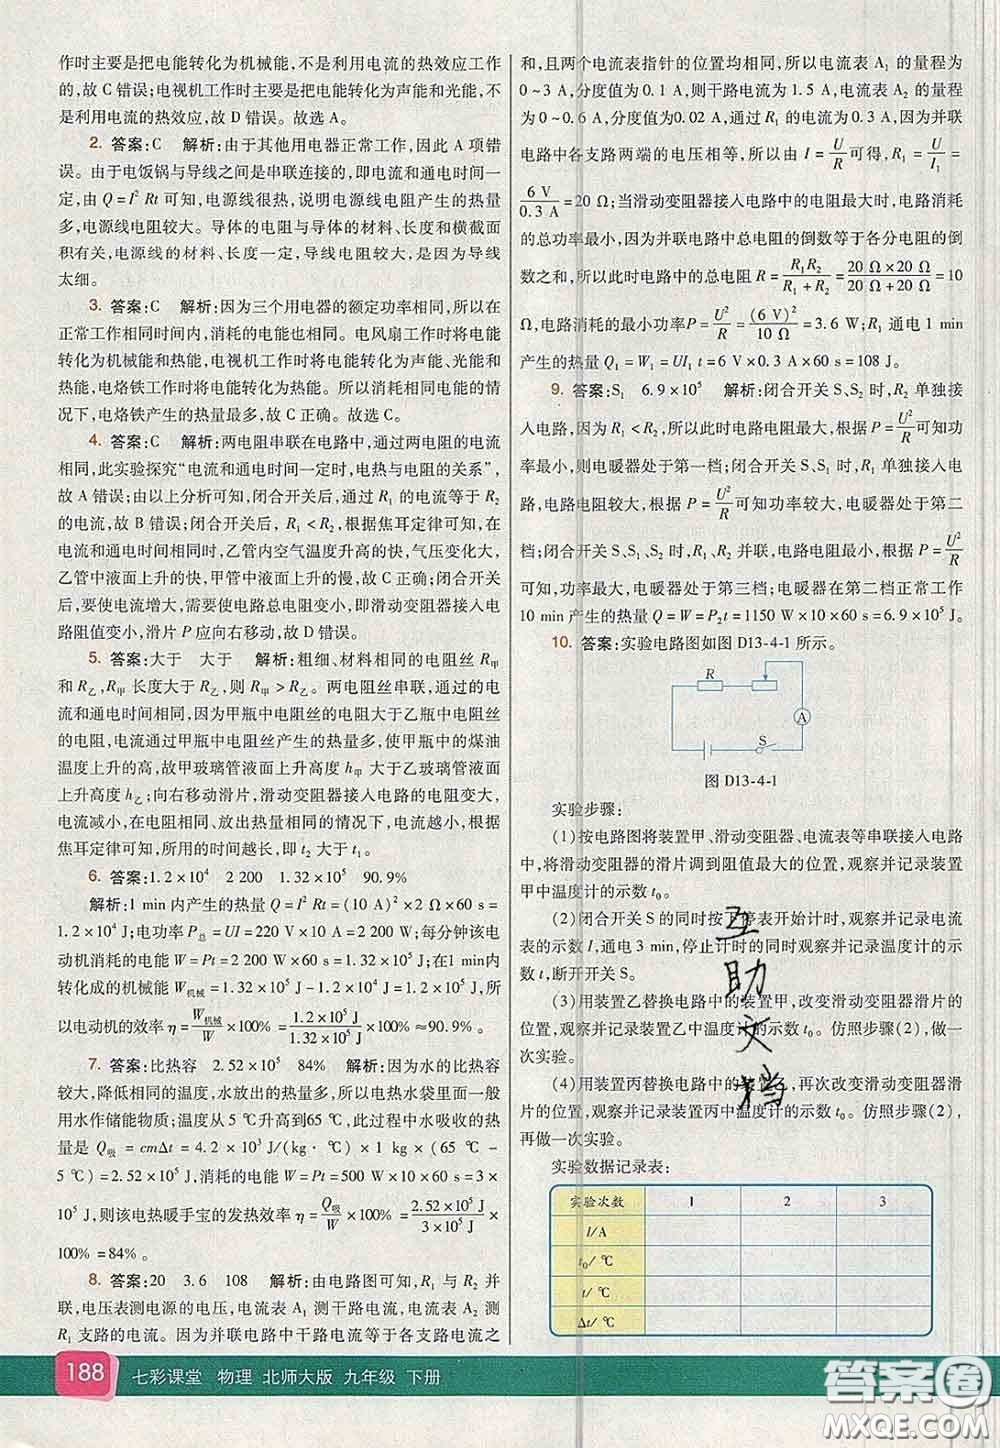 作时主要是把电能转化为机械能,不是利用电流的热效应工作
的,故 C 错误;电视机工作时主要是把电能转化为声能和光能,不
是利用电流的热效应,故 D 错误。故选 A。
2. 答案:C 解析:由于其他用电器正常工作,因此 A 项错
误。由于电饭锅与导线之间是串联连接的,即电流和通电时间一
定,由 Q = I² Rt 可知,电源线很热,说明电源线电阻产生的热量
多,电源线电阻较大。导体的电阻与导体的材料、长度、横截面
积有关,电源线的材料、长度一定,电源线电阻较大,是因为导线
太细。
3. 答案:C 解析:因为三个用电器的额定功率相同,所以在
正常工作相同时间内,消耗的电能也相同。电风扇工作时将电能
转化为机械能和热能,电视机工作时将电能转化为声能、光能和
热能,电烙铁工作时将电能转化为热能。所以消耗相同电能的情
况下,电烙铁产生的热量最多,故 C 正确。故选 C。
4. 答案:C 解析:两电阻串联在电路中,通过两电阻的电流
相同,此实验探究“电流和通电时间一定时,电热与电阻的关系”,
故 A 错误;由以上分析可知,闭合开关后,通过 R₁ 的电流等于 R₂
的电流,故 B 错误;闭合开关后, R₁ < R₂,根据焦耳定律可知,在
电流和通电时间相同时,乙管内空气温度升高的快,气压变化大,
乙管液面上升的快,甲管中液面上升的慢,故 C 正确;闭合开关
后,要使电流增大,需要使电路总电阻变小,即滑动变阻器接入电
路阻值变小,滑片 P 应向右移动,故 D 错误。
5. 答案:大于 大于 解析:粗细、材料相同的电阻丝 R甲
和 R乙,R甲 长度大于 R乙,则 R甲 > R乙。两电阻丝串联,通过的电
流和通电时间相同,因为甲瓶中电阻丝的电阻大于乙瓶中电阻丝
的电阻,通过甲瓶中电阻丝产生的热量多,使甲瓶中的煤油
温度上升的高,故甲玻璃管液面上升的高度 h甲 大于乙玻璃管液面
上升的高度 h乙;向右移动滑片,滑动变阻器接入电路的电阻变大,
电流减小,在电阻相同、放出热量相同的情况下,电流越小,根据
焦耳定律可知,所用的时间越长,即 t₂ 大于 t₁。
6. 答案:1.2×10⁴ 2 200 1.32×10⁵ 90.9%
解析:1 min 内产生的热量 Q = I² Rt = (10 A)² ×2 Ω×60 s =
1.2×10⁴ J;电功率 P总 = UI = 220 V×10 A = 2 200 W;每分钟该电
动机消耗的电能 W = Pt = 2 200 W×60 s = 1.32×10⁵ J;在 1 min内
转化成的机械能 W机械 = 1.32×10⁵ J−1.2×10⁴ J = 1.2×10⁵ J,所
以电动机的效率 η = W机械/W ×100% = 1.2×10⁵ J/1.32×10⁵ J ×100% ≈ 90.9%。
7. 答案:比热容 2.52×10⁵ 84% 解析:因为水的比热容
较大,降低相同的温度,水放出的热量多,所以电热水袋里面一般
用水作储能物质;水从 5 ℃升高到65 ℃,此过程中水吸收的热
量是 Q吸 = cmΔt = 4.2 ×10³ J/(kg·℃)×1 kg×(65 ℃−
5 ℃) = 2.52×10⁵ J,消耗的电能 W = Pt = 500 W×10×60 s = 3×
10⁵ J,则该电热暖手宝的发热效率 η = Q吸/W ×100% = 2.52×10⁵ J/3×10⁵ J ×
100% = 84%。
8. 答案:20 3.6 108 解析:由电路图可知, R₁ 与 R₂ 并
联,电压表测电源的电压,电流表 A₁ 测干路电流,电流表 A₂ 测
R₁ 支路的电流。因为并联电路中干路电流等于各支路电流之
和,且两个电流表指针的位置均相同,所以电流表 A₁ 的量程为
0~3 A,分度值为0.1 A,则干路电流为 1.5 A,电流表 A₂ 的量程
为 0~0.6 A,分度值为0.02 A,通过 R₁ 的电流为 0.3 A,因为并联
电路中各支路两端的电压相等,所以由 I = U/R 可得, R₁ = U/I₁ =
6 V/0.3 A = 20 Ω;当滑动变阻器接入电路中的电阻最大时,电路消耗
的总功率最小,因为并联电路中总电阻的倒数等于各分电阻的倒
数之和,所以此时电路中的总电阻 R = R₁R₂/(R₁+R₂) = 20 Ω×20 Ω/(20 Ω+20 Ω) = 10
Ω,电路消耗的最小功率 P = U²/R = (6 V)²/10 Ω = 3.6 W; R₁ 通电 1 min
产生的热量 Q₁ = W₁ = UI₁ t = 6 V×0.3 A×60 s = 108 J。
9. 答案:S₁ 6.9×10⁵ 解析:闭合开关 S、S₂ 时, R₂ 单独接
入电路,因为 R₁ < R₂,所以此时电路电阻最大,根据 P = U²/R 可知功率最
小,则电暖器处于第一档;闭合开关 S、S₁ 时, R₁ 单独接入电
路,电路电阻较大,根据 P = U²/R 可知功率较大,电暖器处于第二
档;闭合开关 S、S₁、S₂ 时, R₁、R₂ 并联,电路电阻最小,根据 P = U²/R
可知,功率最大,电暖器处于第三档;电暖器在第二档正常工作
10 min 产生的热量 Q = W = P₂t = 1150 W×10×60 s = 6.9×10⁵ J。
10. 答案:实验电路图如图 D13-4-1 所示。
R
A
S
图 D13-4-1
实验步骤:
(1)按电路图将装置甲、滑动变阻器、电流表等串联接入电路
中,将滑动变阻器的滑片调到阻值最大的位置,观察并记录装置
甲中温度计的示数 t₀。
(2)闭合开关 S 的同时按下停表开始计时,观察并记录电流
表的示数 I,通电 3 min,停止计时的同时观察并记录温度计的示
数 t,断开开关 S。
(3)用装置乙替换电路中的装置甲,改变滑动变阻器滑片的
位置,观察并记录装置乙中温度计的示数 t₀。仿照步骤(2),做一
次实验。
(4)用装置丙替换电路中的装置乙,再次改变滑动变阻器滑
片的位置,观察并记录装置丙中温度计的示数 t₀。仿照步骤(2),
再做一次实验。
实验数据记录表:
实验次数 1 2 3
I/A
t₀/℃
t/℃
Δt/℃
互
助
文
档
188 七彩课堂 物理 北师大版 九年级 下册
答案圈
MXQE.COM